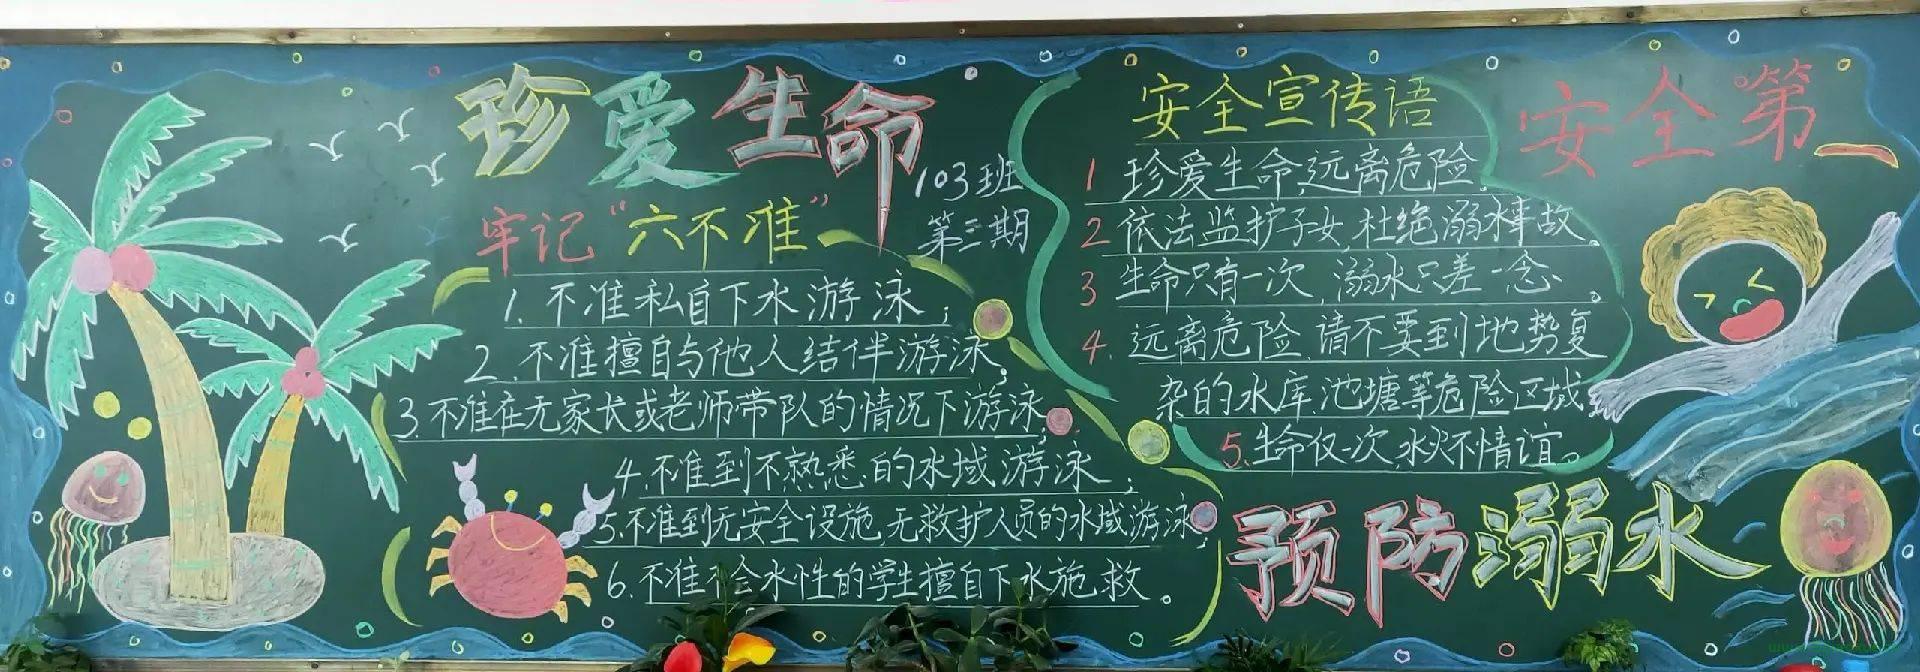 珍爱生命
103班
第三期
牢记“六不准”
1.不准私自下水游泳；
2.不准擅自与他人结伴游泳。
3.不准在无家长或老师带队的情况下游泳；
4.不准到不熟悉的水域游泳；
5.不准到无安全设施、无救护人员的水域游泳；
6.不准不会水性的学生擅自下水施救。
安全宣传语
1 珍爱生命,远离危险。
2 依法监护子女,杜绝溺水事故。
3 生命只有一次,溺水只差一念。
4.远离危险,请不要到地势复
杂的水库、池塘等危险区域
5.生命仅一次,水火不情谊。
安全第一
预防溺水